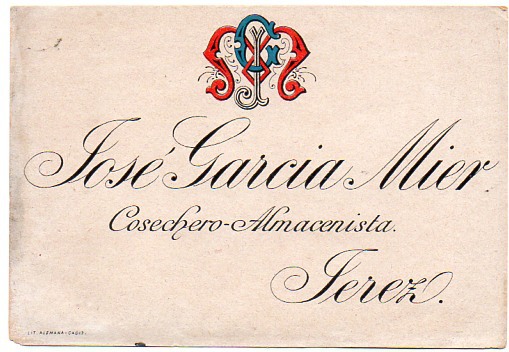 José Garcia Mier.
Cosechero-Almacenista.
Jerez.
LIT. ALEMANA-CADIZ.